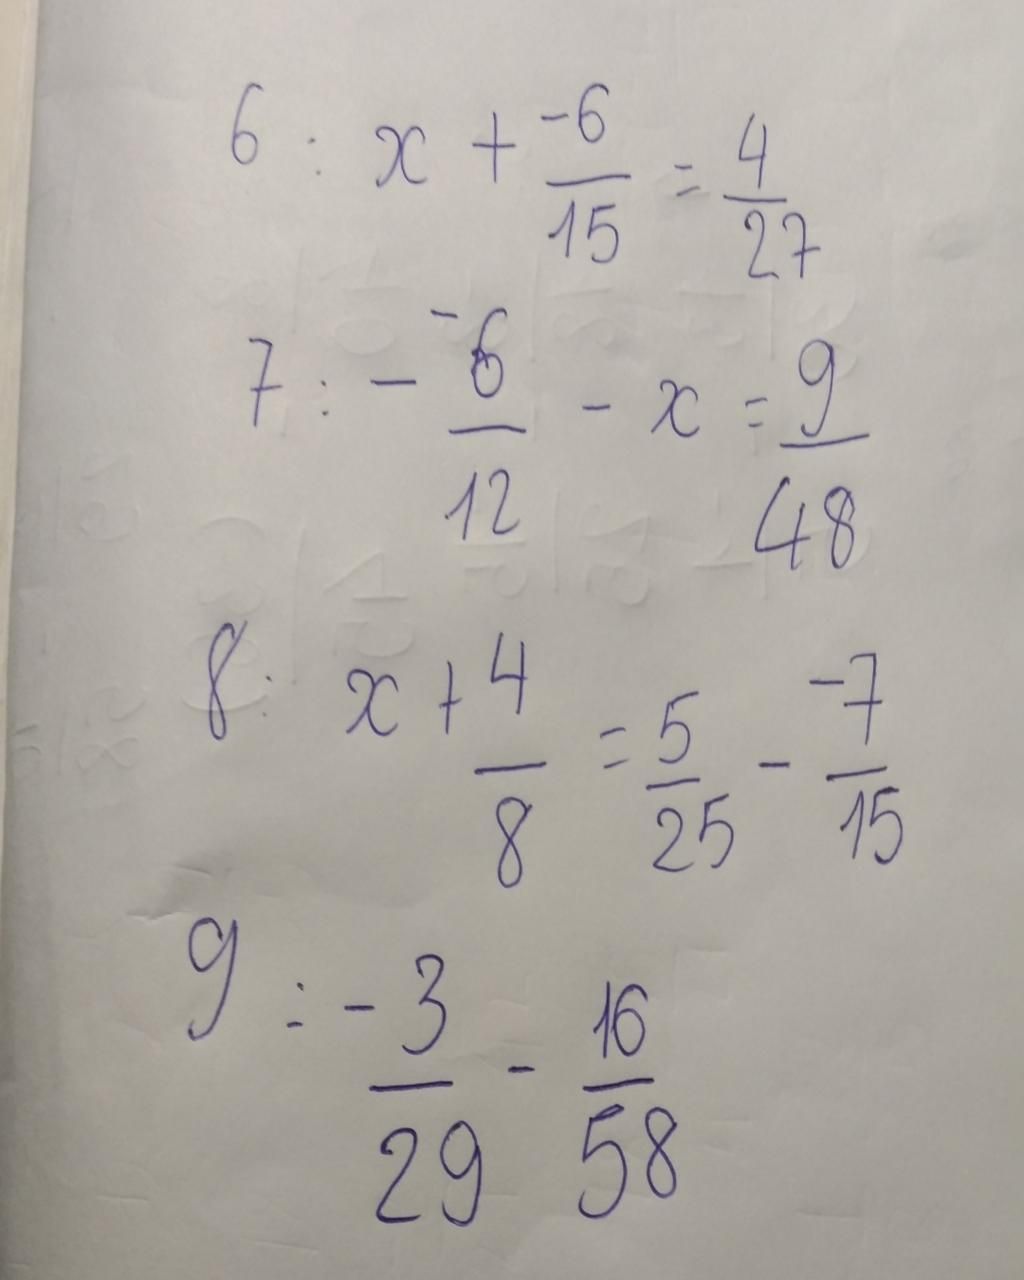 6 : x + -6/15 = 4/27
7 : - -6/12 - x = 9/48
8 : x + 4/8 = 5/25 - -7/15
9 : -3/29 - 16/58